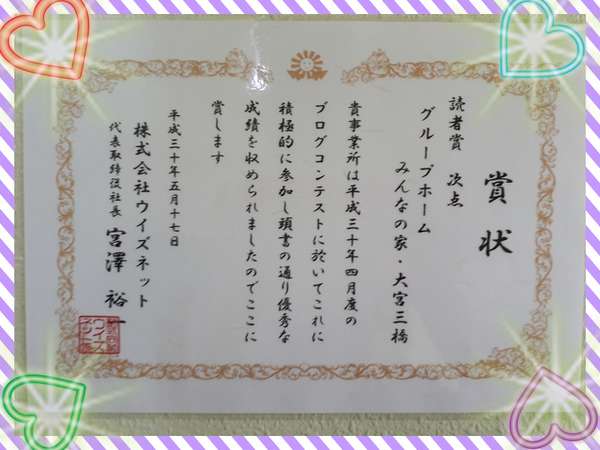 賞状
読者賞 次点
グループホーム
みんなの家・大宮三橋
貴事業所は平成三十年四月度の
ブログコンテストに於いてこれに
積極的に参加し頭書の通り優秀な
成績を収められましたのでここに
賞します
平成三十年五月十七日
株式会社ウイズネット
代表取締役社長 宮澤 裕一